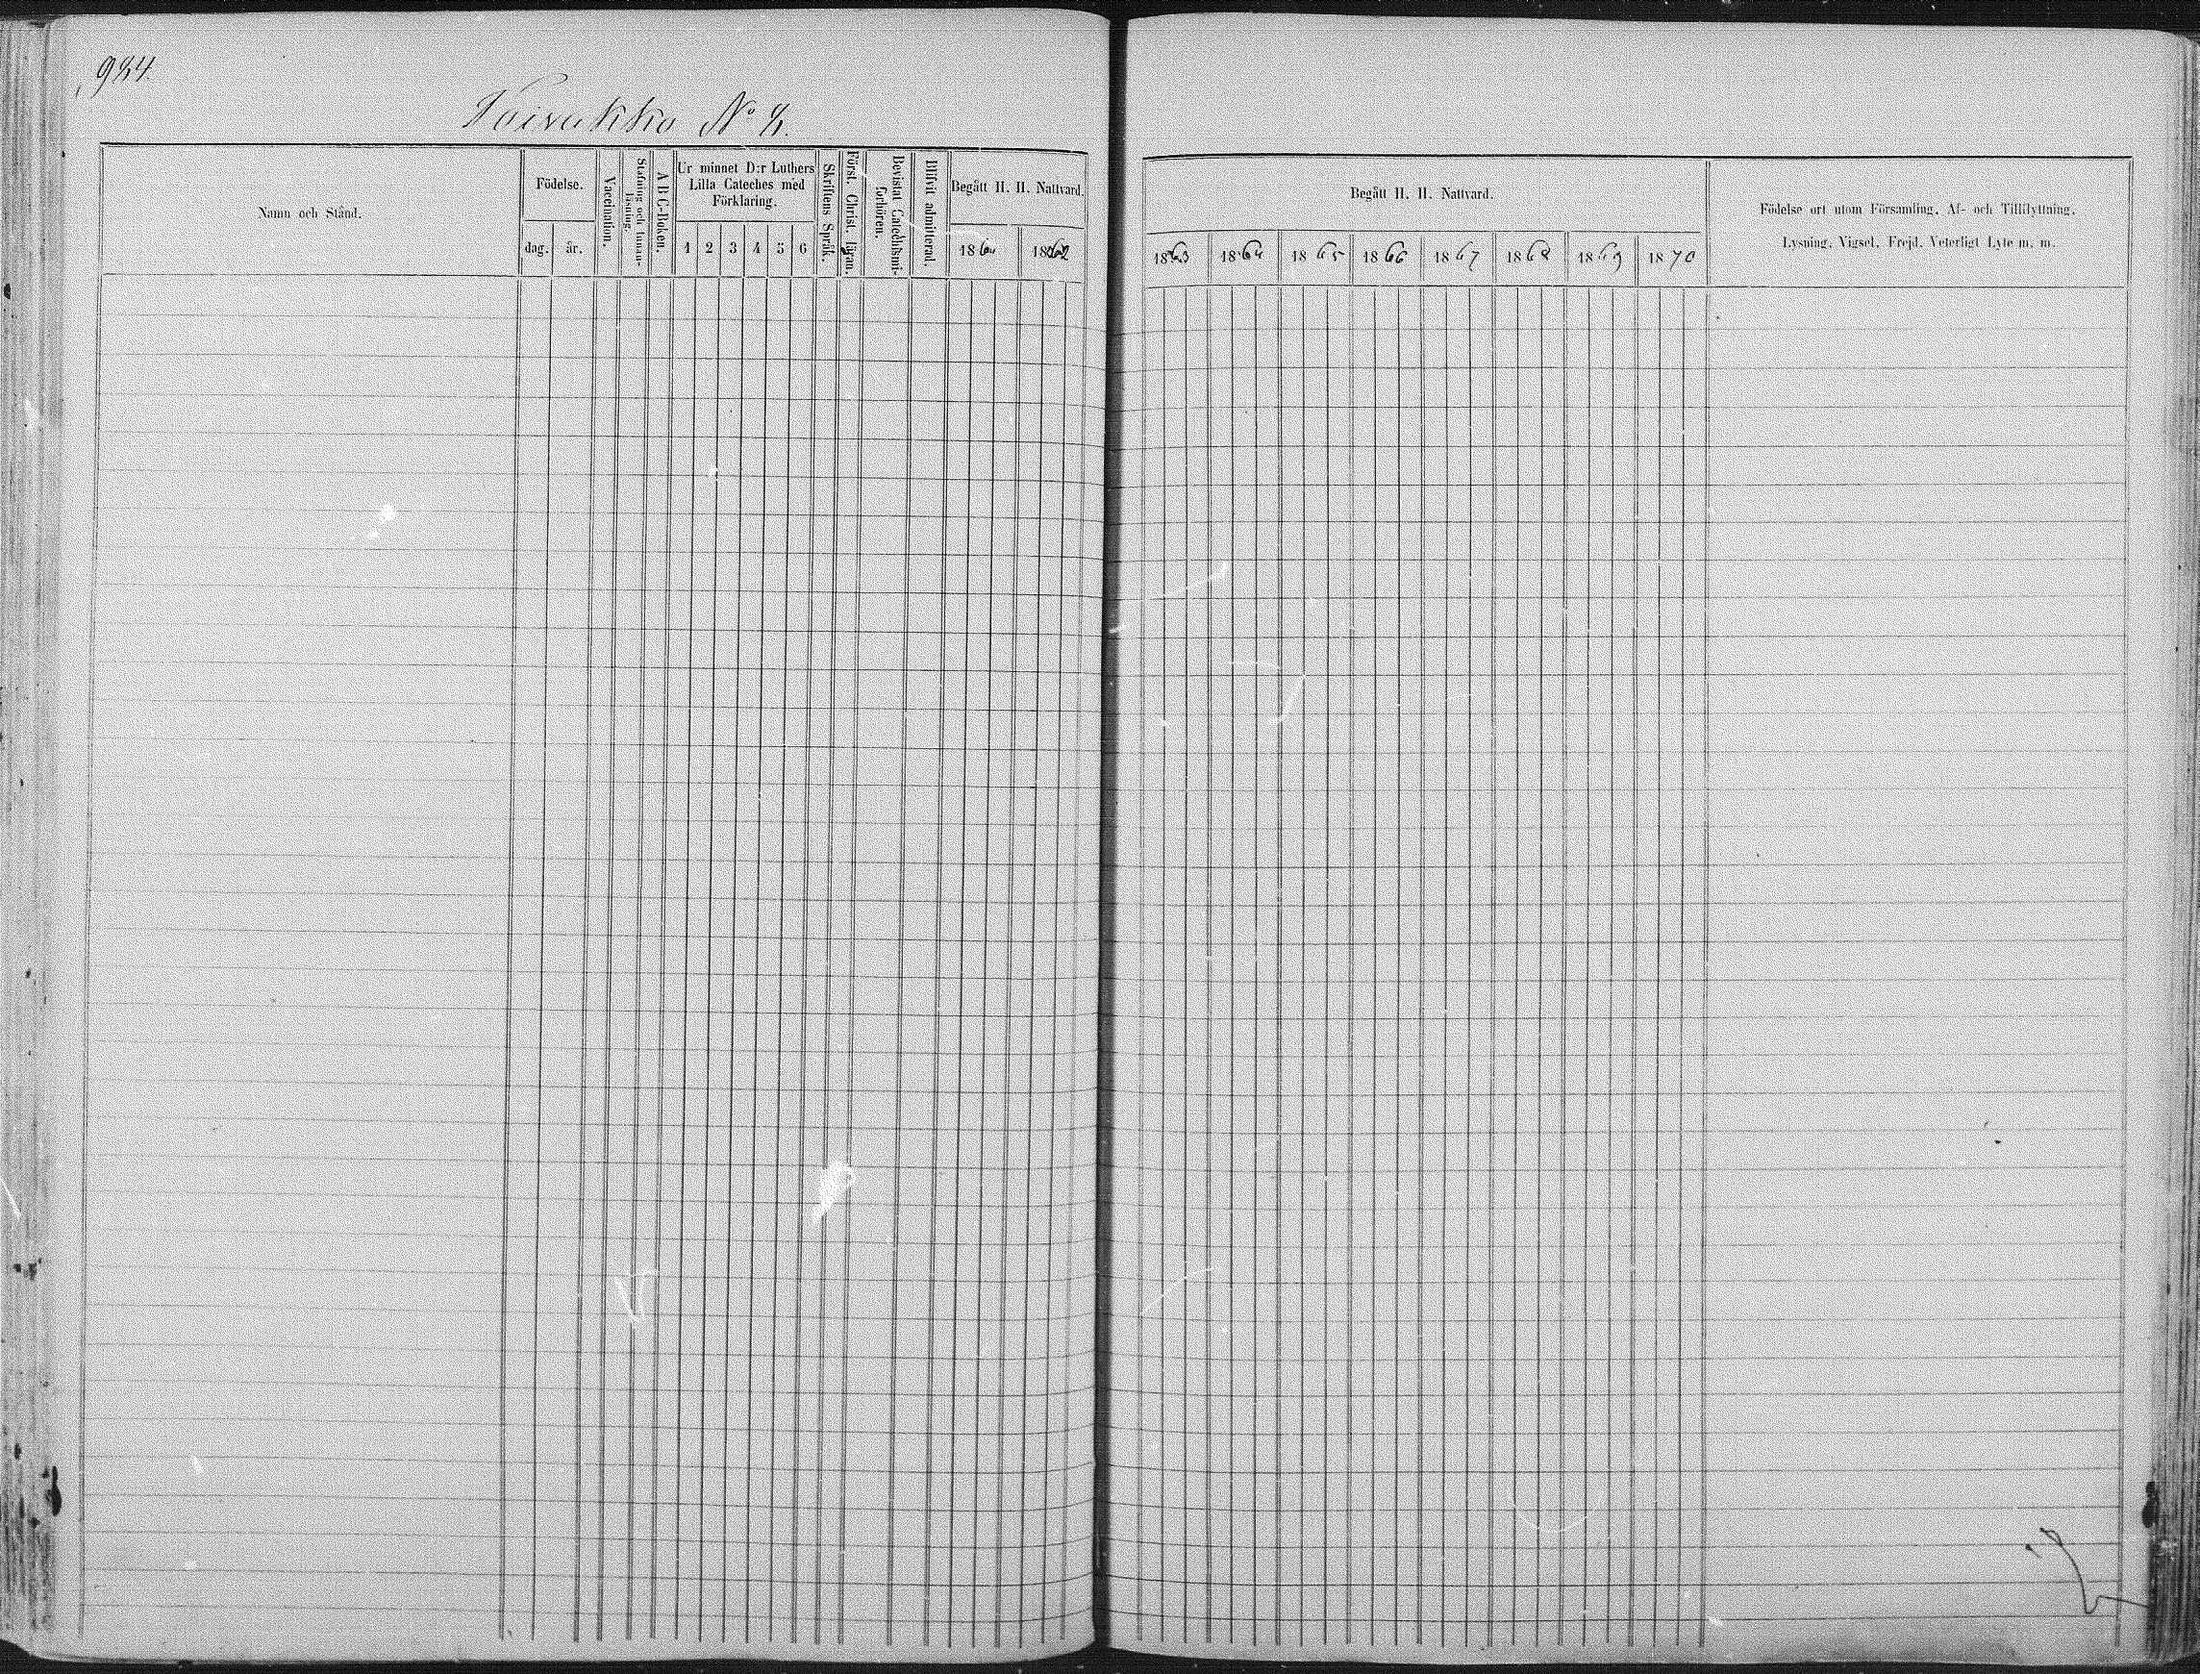 984.
Toivakko No 8.
Namn och Stånd.
Födelse.
dag.
år.
Vaccination.
Stafning och Innan-
läsning.
A B C-Boken.
Ur minnet D:r Luthers
Lilla Cateches med
Förklaring.
1 2 3 4 5 6
Skriftens Språk.
Först. Christ. läran.
Bevistat Catechismi-
förhören.
Blifvit admitterad.
Begått H. H. Nattvard.
1862
Begått H. H. Nattvard.
1863 1864 1865 1866 1867 1868 1869 1870
Födelse ort utom Församling, Af- och Tillflyttning,
Lysning, Vigsel, Frejd, Veterligt Lyte m. m.